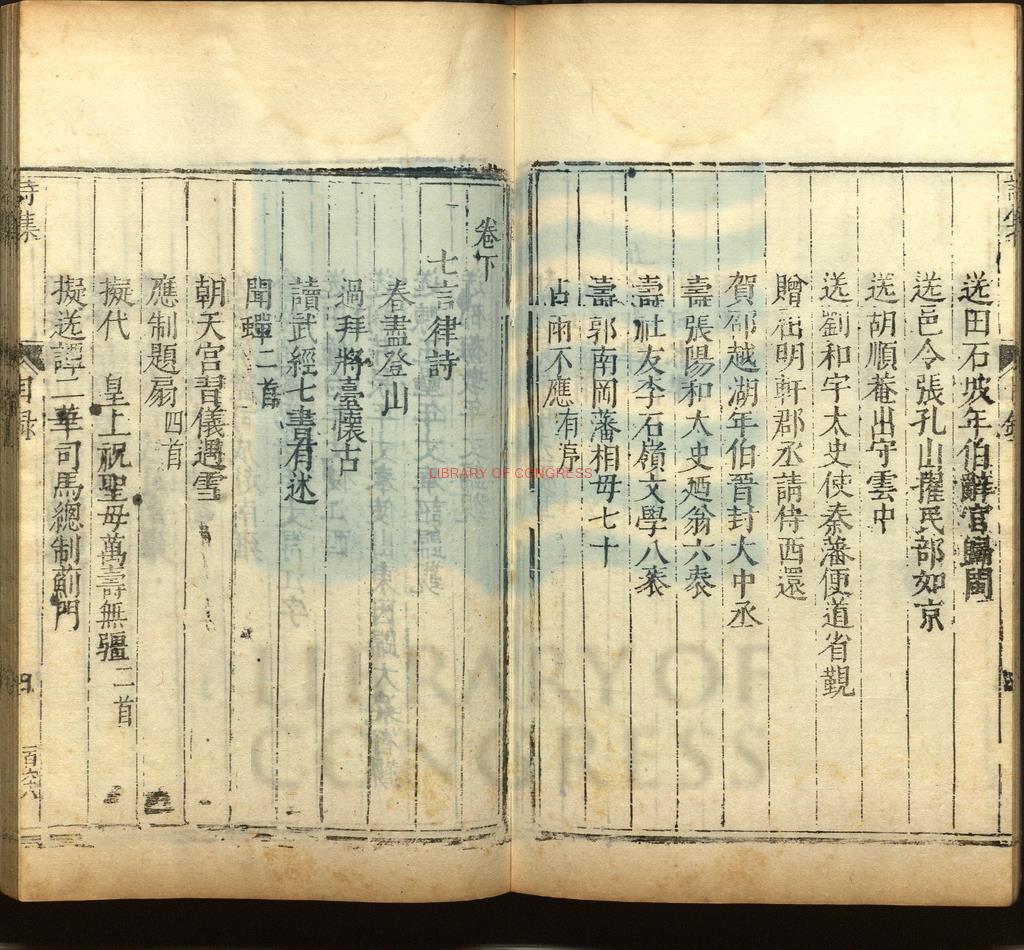 送田石坡年伯辭官歸閩
送邑令張孔山擢民部如京
送胡順菴出守雲中
送劉和宇太史使秦藩便道省覲
贈祖明軒郡丞請侍西還
賀鄒越湖年伯晉封大中丞
壽張陽和太史廼翁六袠
壽社友李石嶺文學八袠
壽郭南岡藩相母七十
占雨不應有序
卷下
七言律詩
春盡登山
過拜將臺懷古
讀武經七書有述
聞蟬二首
朝天宮習儀遇雪
應制題扇四首
擬代 皇上祝聖母萬壽無疆二首
擬送譚二華司馬總制薊門
詩集
目録
百六八
LIBRARY OF CONGRESS
LIBRARY OF
CONGRESS